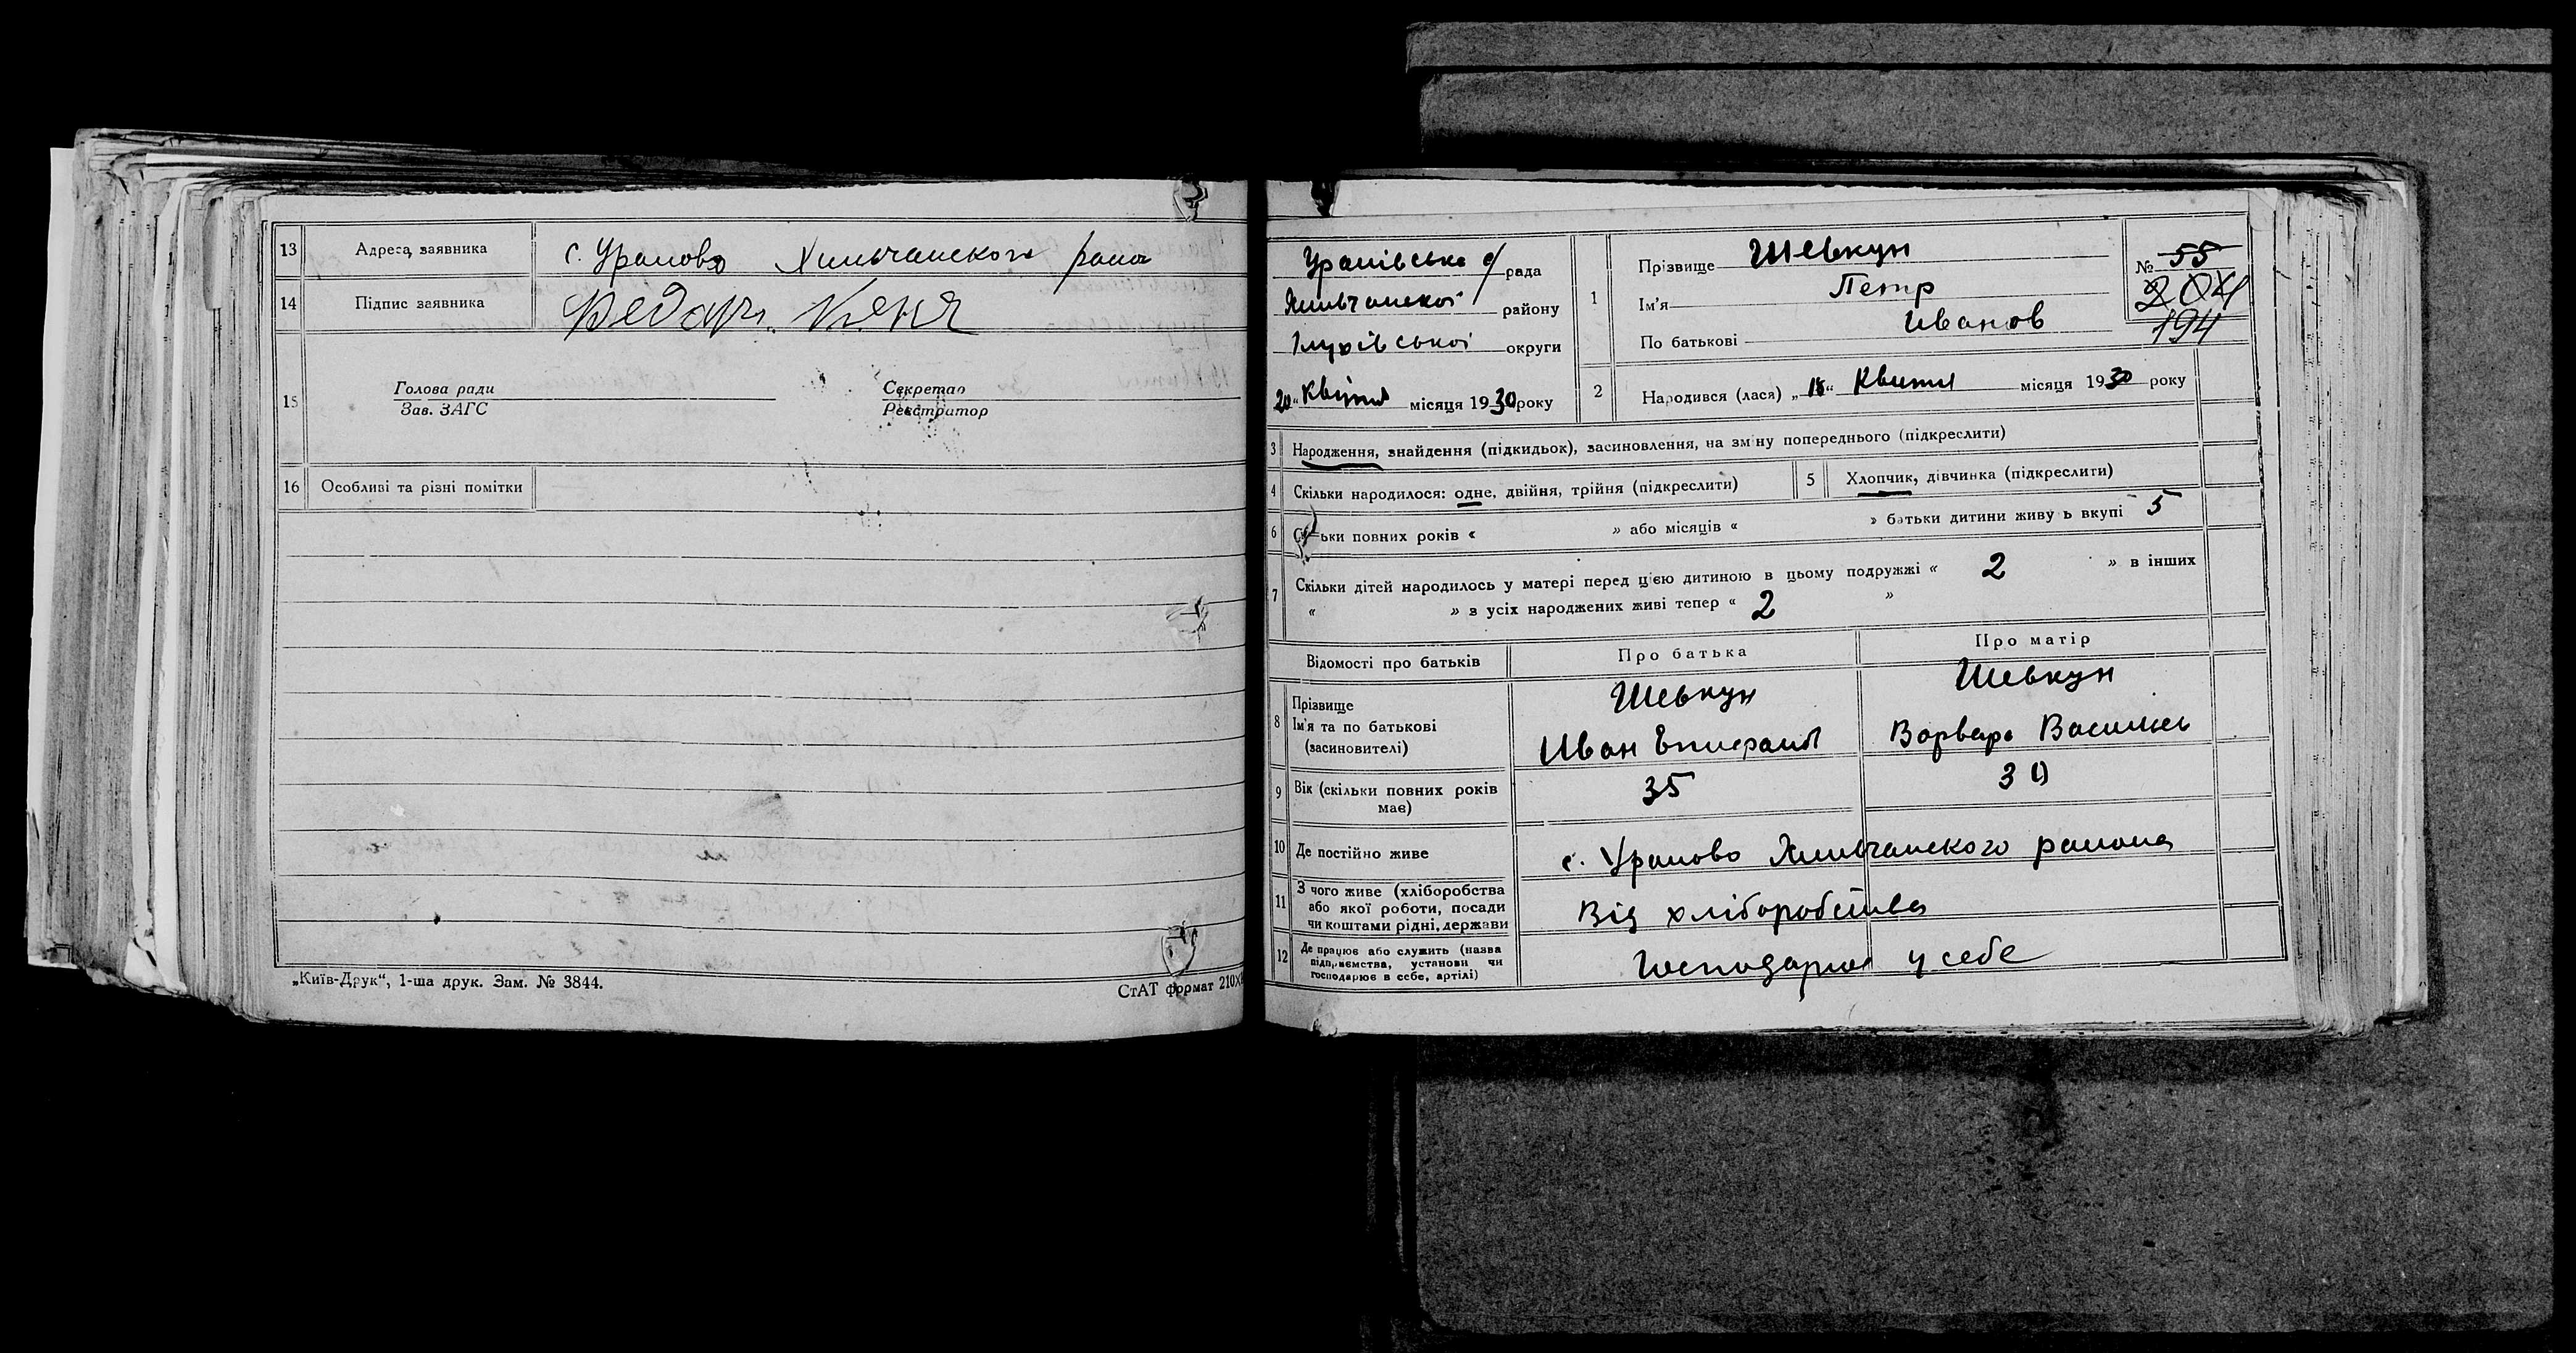 13 Адреса заявника с. Уралово Хильчанского рано
14 Підпис заявника Федар. Кеня
15 Голова ради Секретар
Зав. ЗАГС Реєстратор
16 Особливі та різні помітки
„Київ-Друк“, 1-ша друк. Зам. № 3844.
СтАТ формат 210X
Уралівська с/рада
Хильчанської району
Глухівської округи
20 „ Квітня місяця 1930 року
1 Прізвище Шевкун
Ім'я Петр
По батькові Иванов
№ 55
204
194
2 Народився (лася) „18“ Квитня місяця 1930 року
3 Народження, знайдення (підкидьок), засиновлення, на зміну попереднього (підкреслити)
4 Скільки народилося: одне, двійня, трійня (підкреслити)
5 Хлопчик, дівчинка (підкреслити)
6 Скільки повних років « » або місяців « » батьки дитини живуть вкупі 5
7 Скільки дітей народилось у матері перед цією дитиною в цьому подружжі « 2 » в інших
« » з усіх народжених живі тепер « 2 »
Відомості про батьків Про батька Про матір
8 Прізвище Шевкун Шевкун
Ім'я та по батькові
(засиновителі) Иван Епифанов Варвара Василев
9 Вік (скільки повних років
має) 35 30
10 Де постійно живе с. Уралово Хильчанского района
11 З чого живе (хліборобства
або якої роботи, посади
чи коштами рідні, держави Від хліборобства
12 Де працює або служить (назва
підприємства, установи чи
господарює в себе, артілі) Господарює у себе